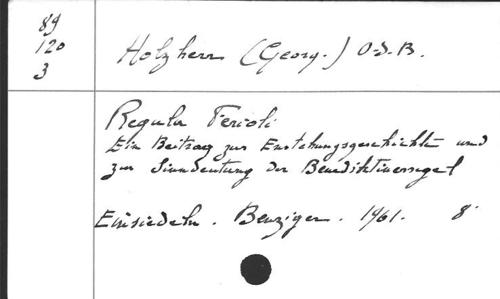 89
120
3
Holzherr (Georg.) O.S.B.
Regula Ferioli
Ein Beitrag zur Enstehungsgeschichte und
zur Sinndeutung der Benediktinerregel
Einsiedeln. Benziger. 1961. 8°